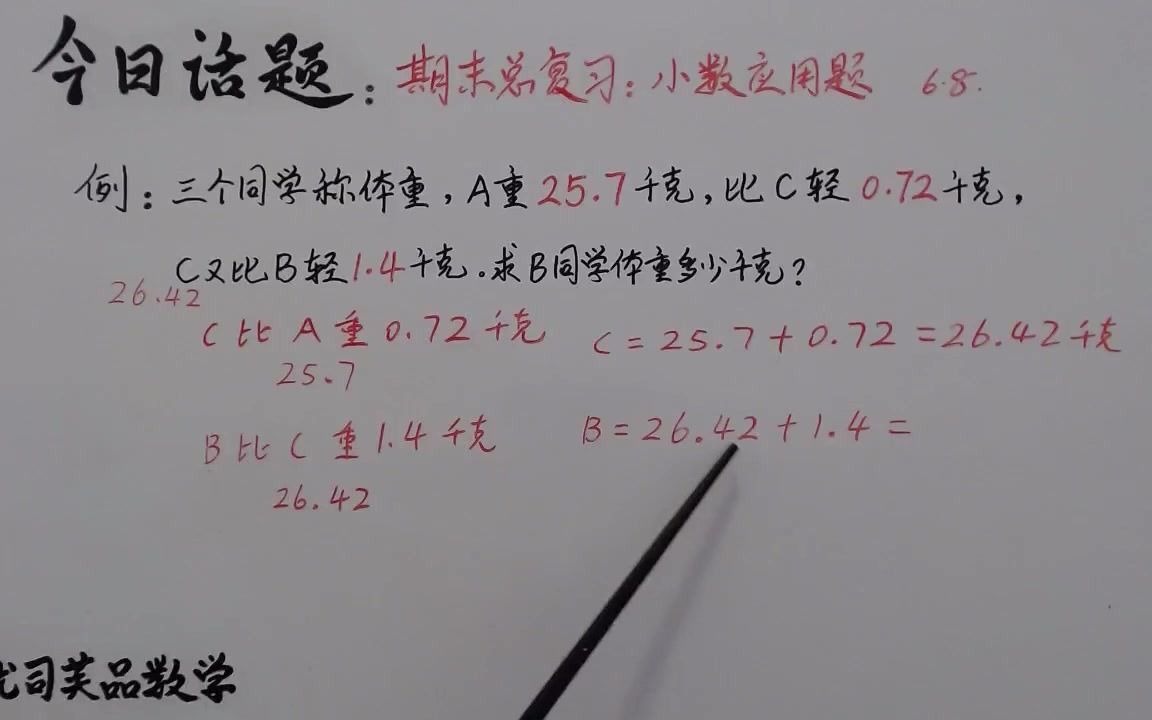 今日话题：期末总复习：小数应用题 6.8.
例：三个同学称体重，A重25.7千克，比C轻0.72千克，
C又比B轻1.4千克.求B同学体重多少千克？
26.42
C比A重0.72千克 C=25.7+0.72=26.42千克
25.7
B比C重1.4千克 B=26.42+1.4=
26.42
司芙品数学